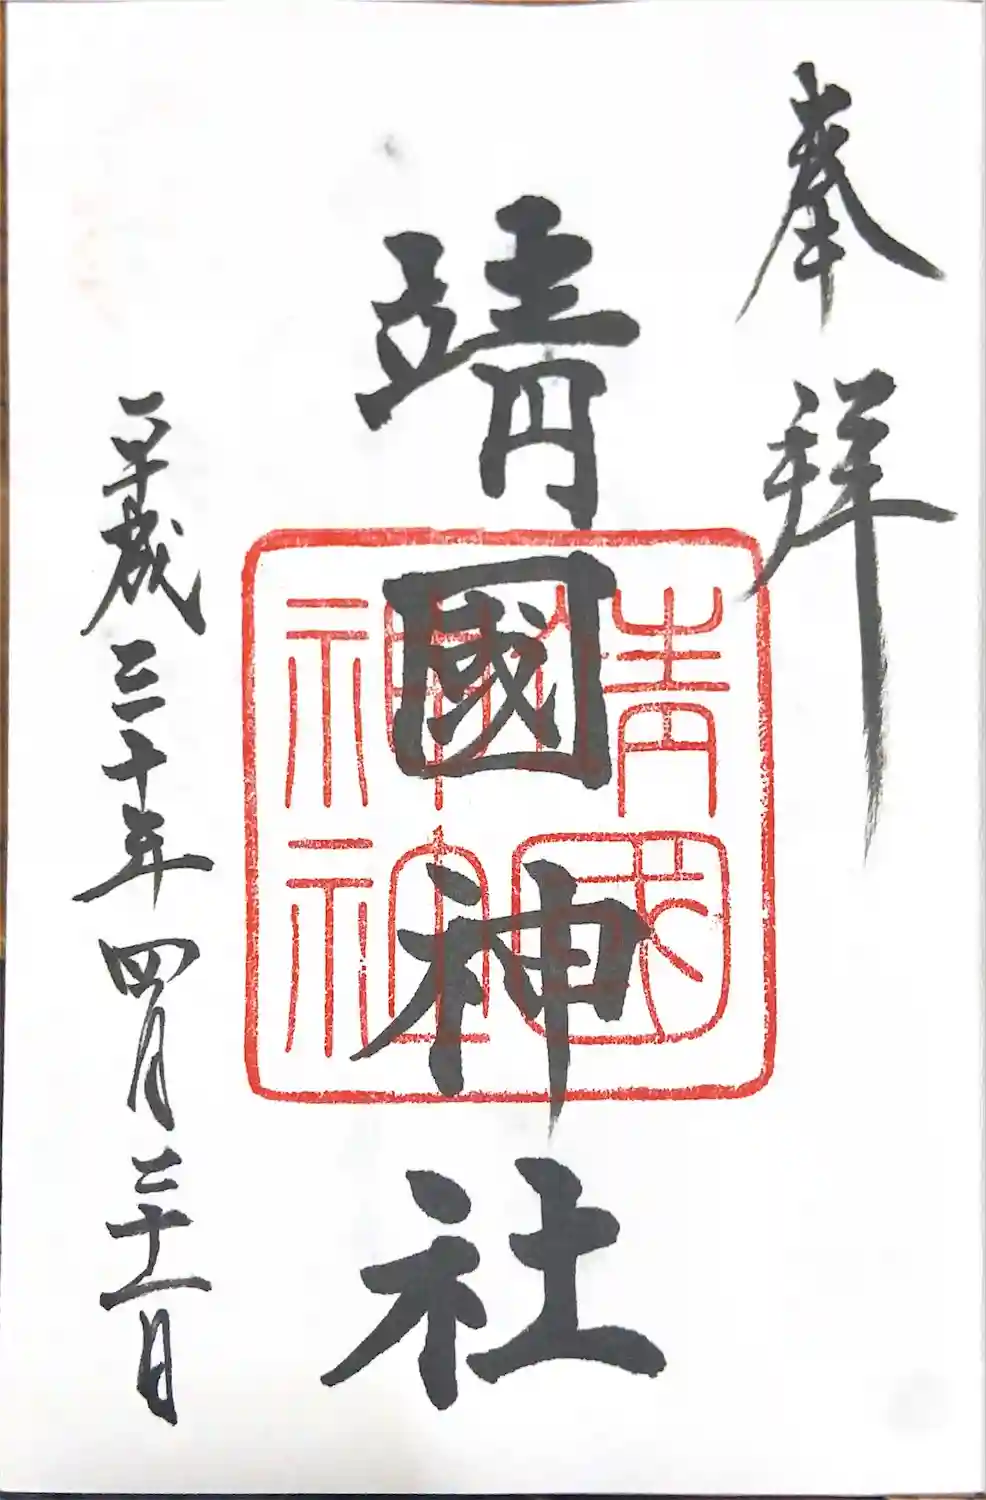 奉拝
靖國神社
靖國神社
平成三十年四月二十一日